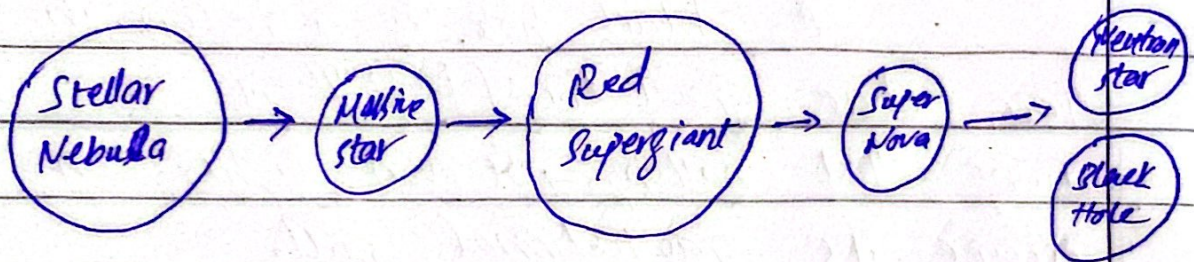 Stellar
Nebula
Massive
star
Red
Supergiant
Super
Nova
Neutron
star
Black
Hole